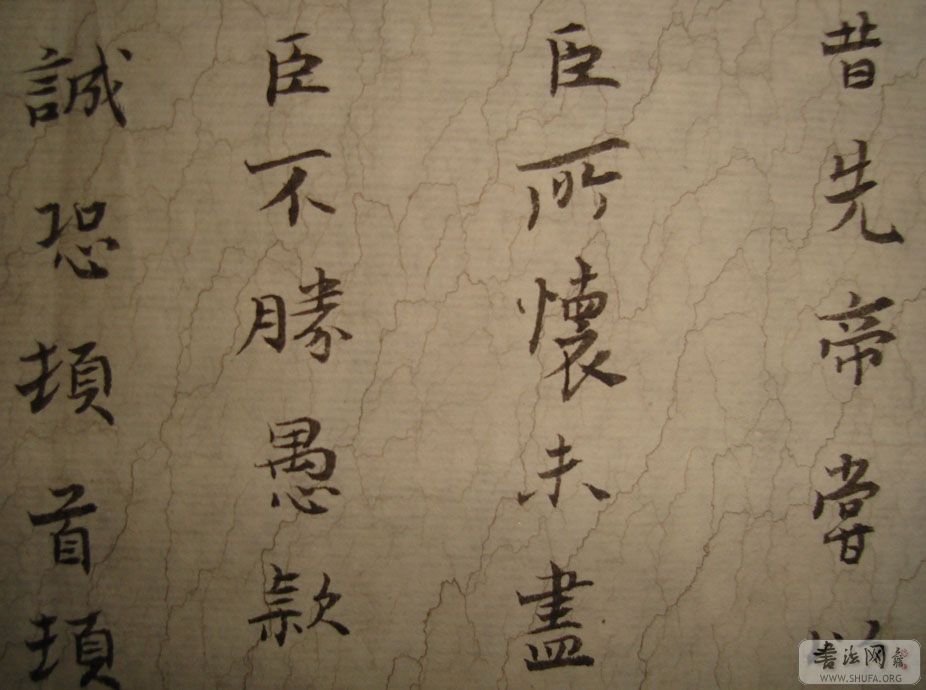 昔先帝嘗以
臣所懷未盡
臣不勝愚款
誠恐頓首頓
书法网
WWW.SHUFA.ORG